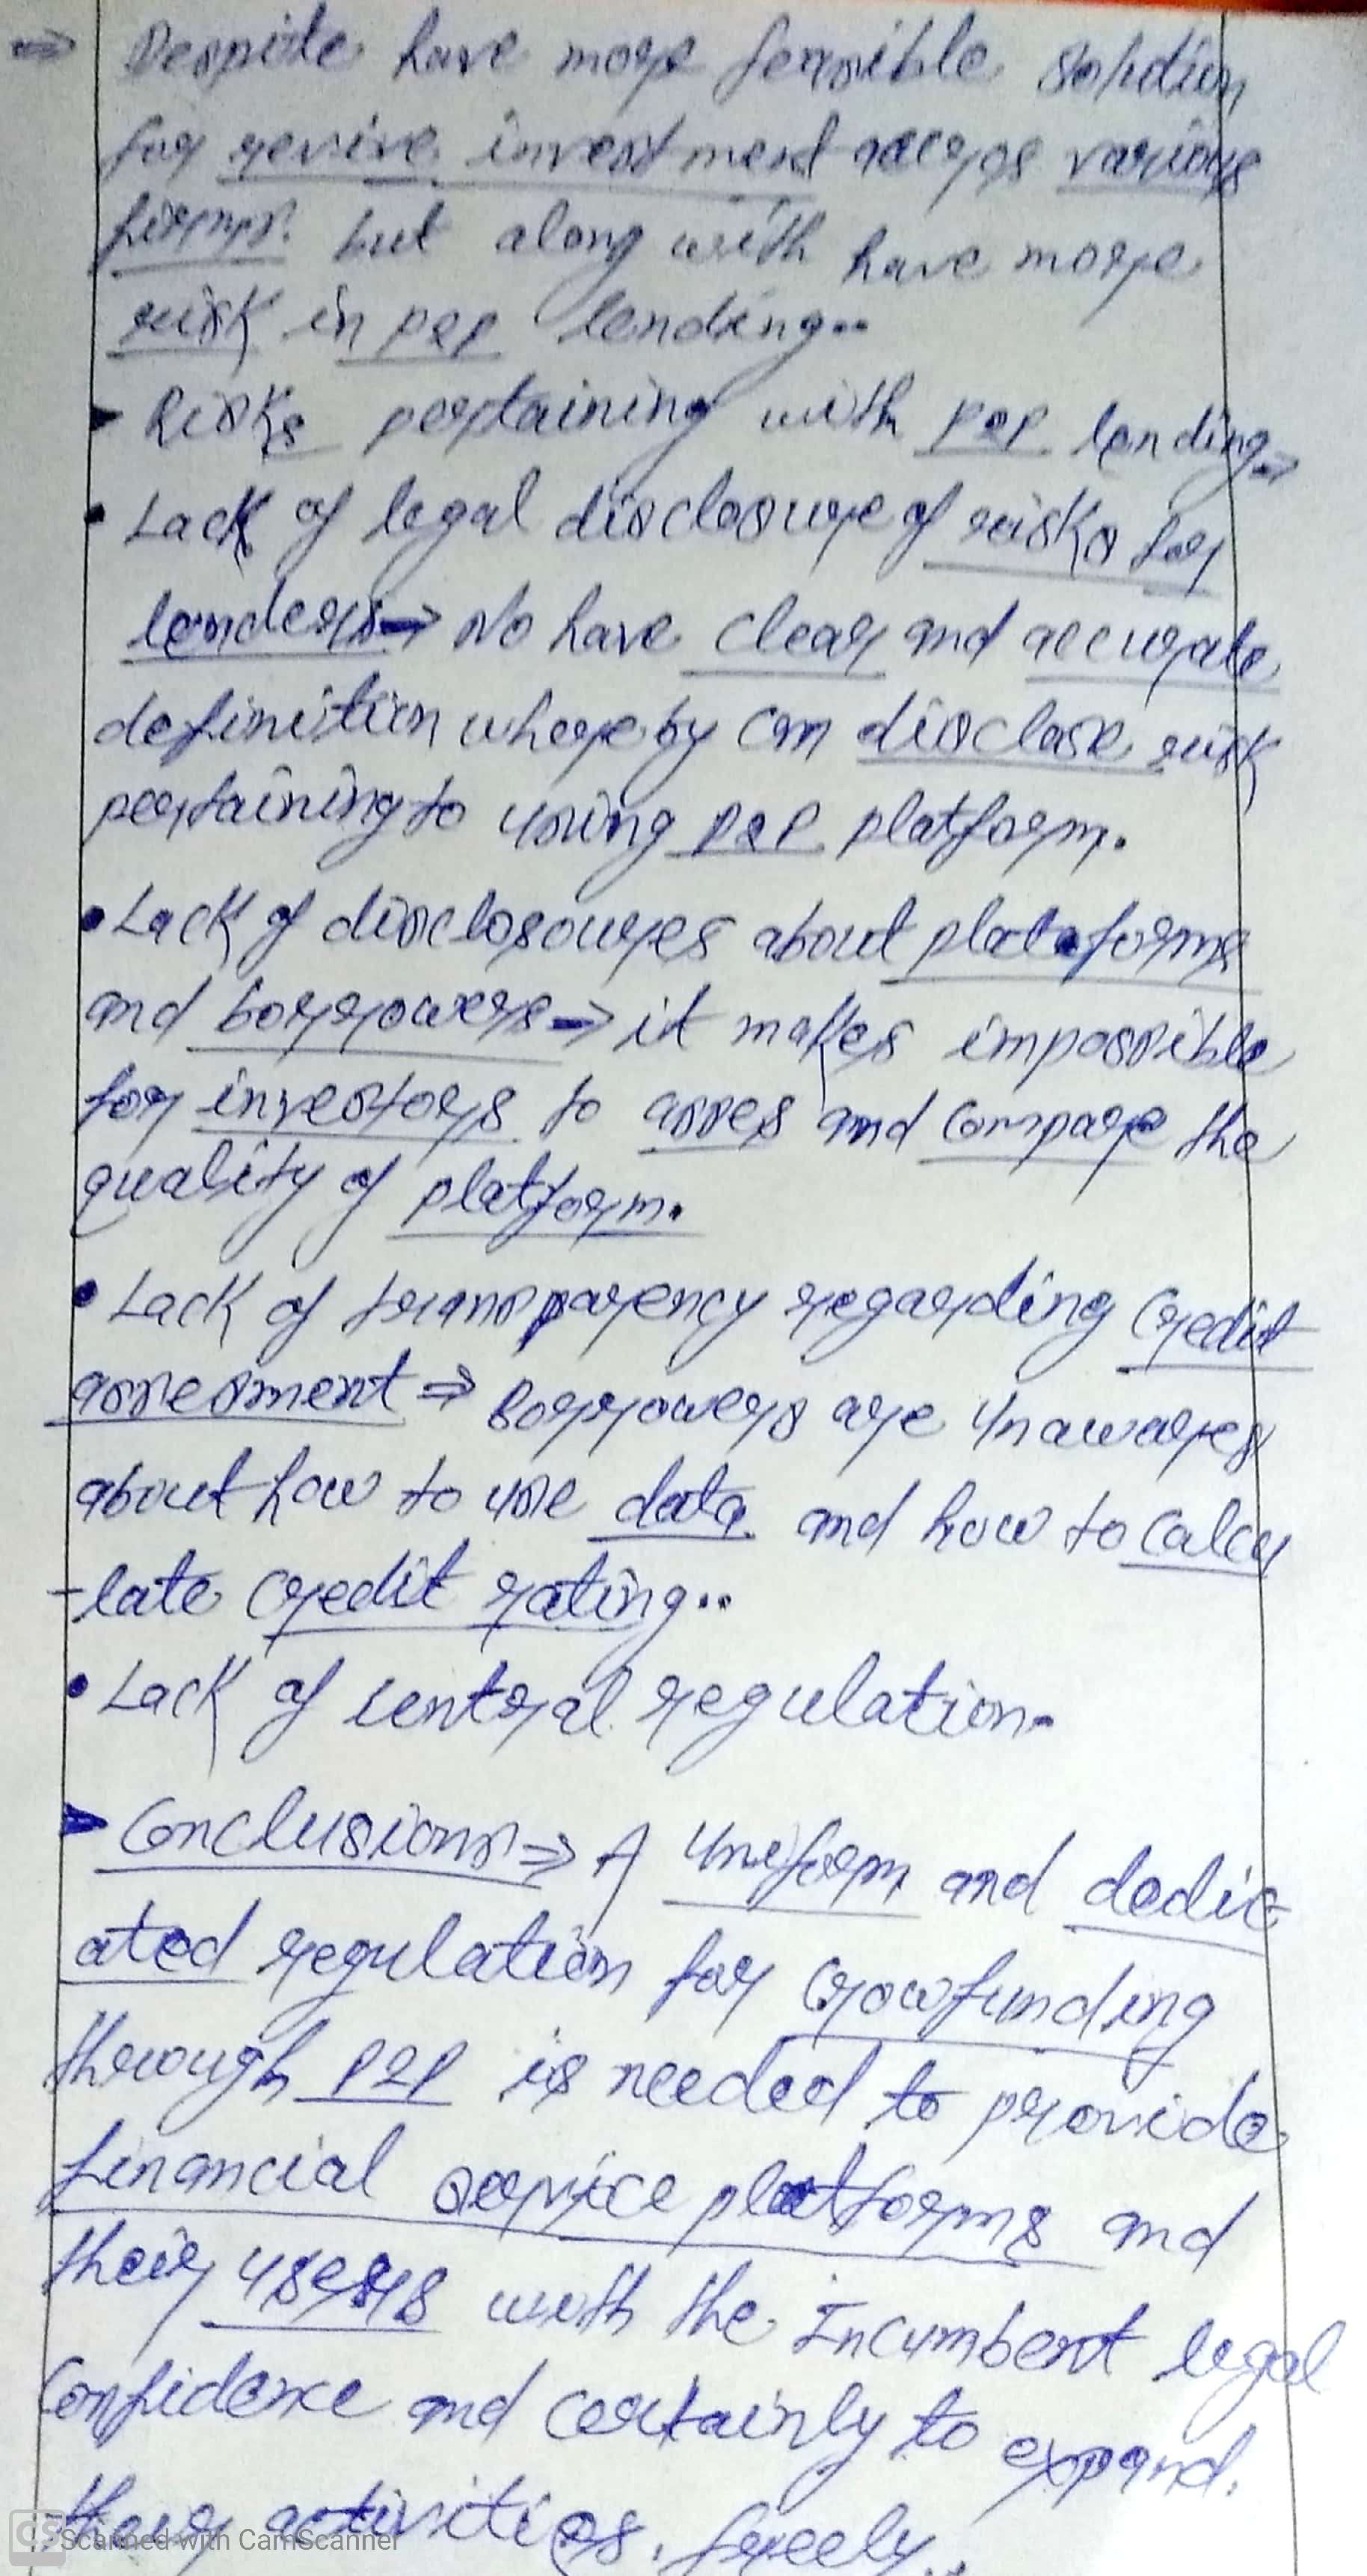 ⇒ Despite have more feasible solution
for revive investment accros various
firms. but along with have more
risk in P2P lending..
▸ Risks pertaining with P2P lending→
• Lack of legal disclosure of risks for
lenders→ No have clear and accurate
definition whereby can disclose risk
pertaining to using P2P platform.
• Lack of disclosoures about plataforms
and borrowers→ it makes impossible
for investors to asses and compare the
quality of platform.
• Lack of transparency regarding credit
assesment ⇒ Borrowers are unawares
about how to use data and how to calcu
-late credit rating..
• Lack of central regulation.
▸ Conclusions⇒ A uniform and dedic-
ated regulation for crowfunding
through P2P is needed to provide
financial service platforms and
their users with the Incumbent legal
confidence and certainly to expand.
their activities. freely..
CS Scanned with CamScanner